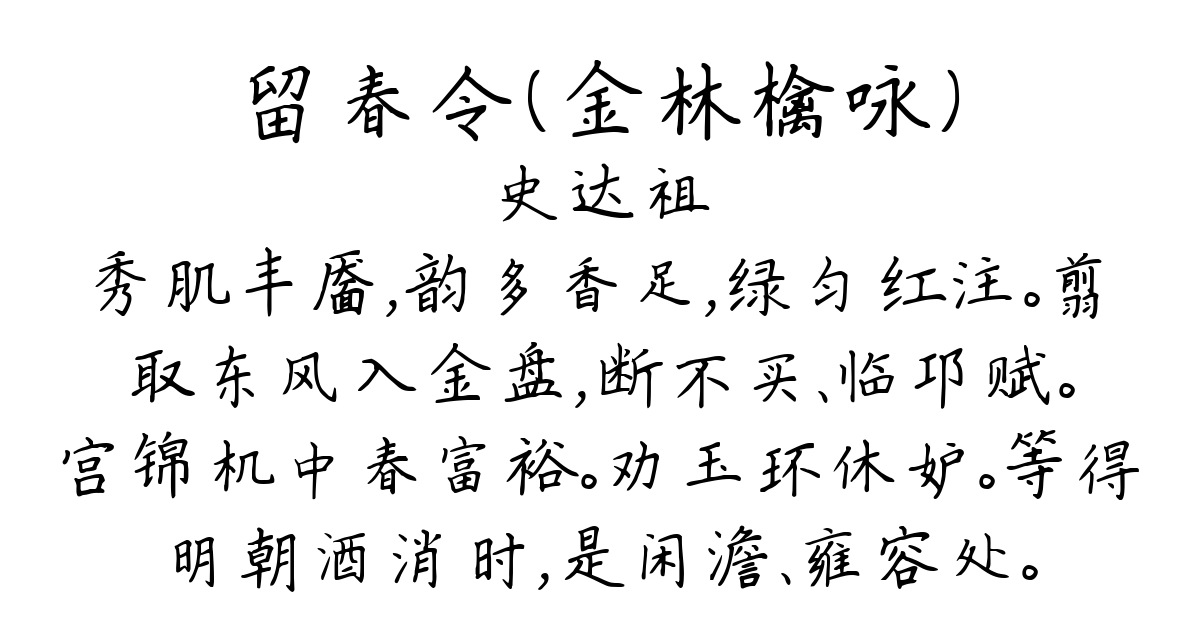 留春令(金林檎咏)
史达祖
秀肌丰靥,韵多香足,绿匀红注。翦
取东风入金盘,断不买、临邛赋。
宫锦机中春富裕。劝玉环休妒。等得
明朝酒消时,是闲澹、雍容处。